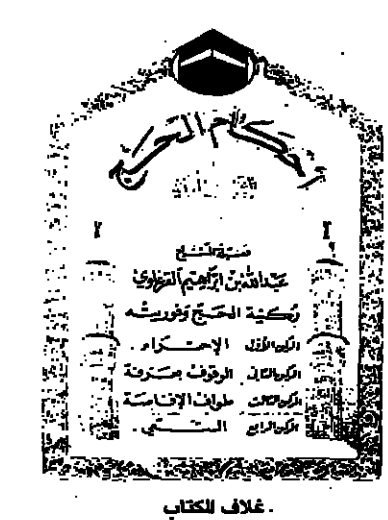 أحكام الحج
فضيلة الشيخ
عبدالله بن ابراهيم القرعاوي
ركنية الحج وفوريته
الركن الأول الإحرام .
الركن الثاني الوقوف بعرفة
الركن الثالث طواف الإفاضة
الركن الرابع السعي .
. غلاف للكتاب